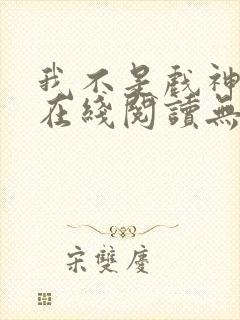 我不是戲神
在綫閱讀無
宋雙慶